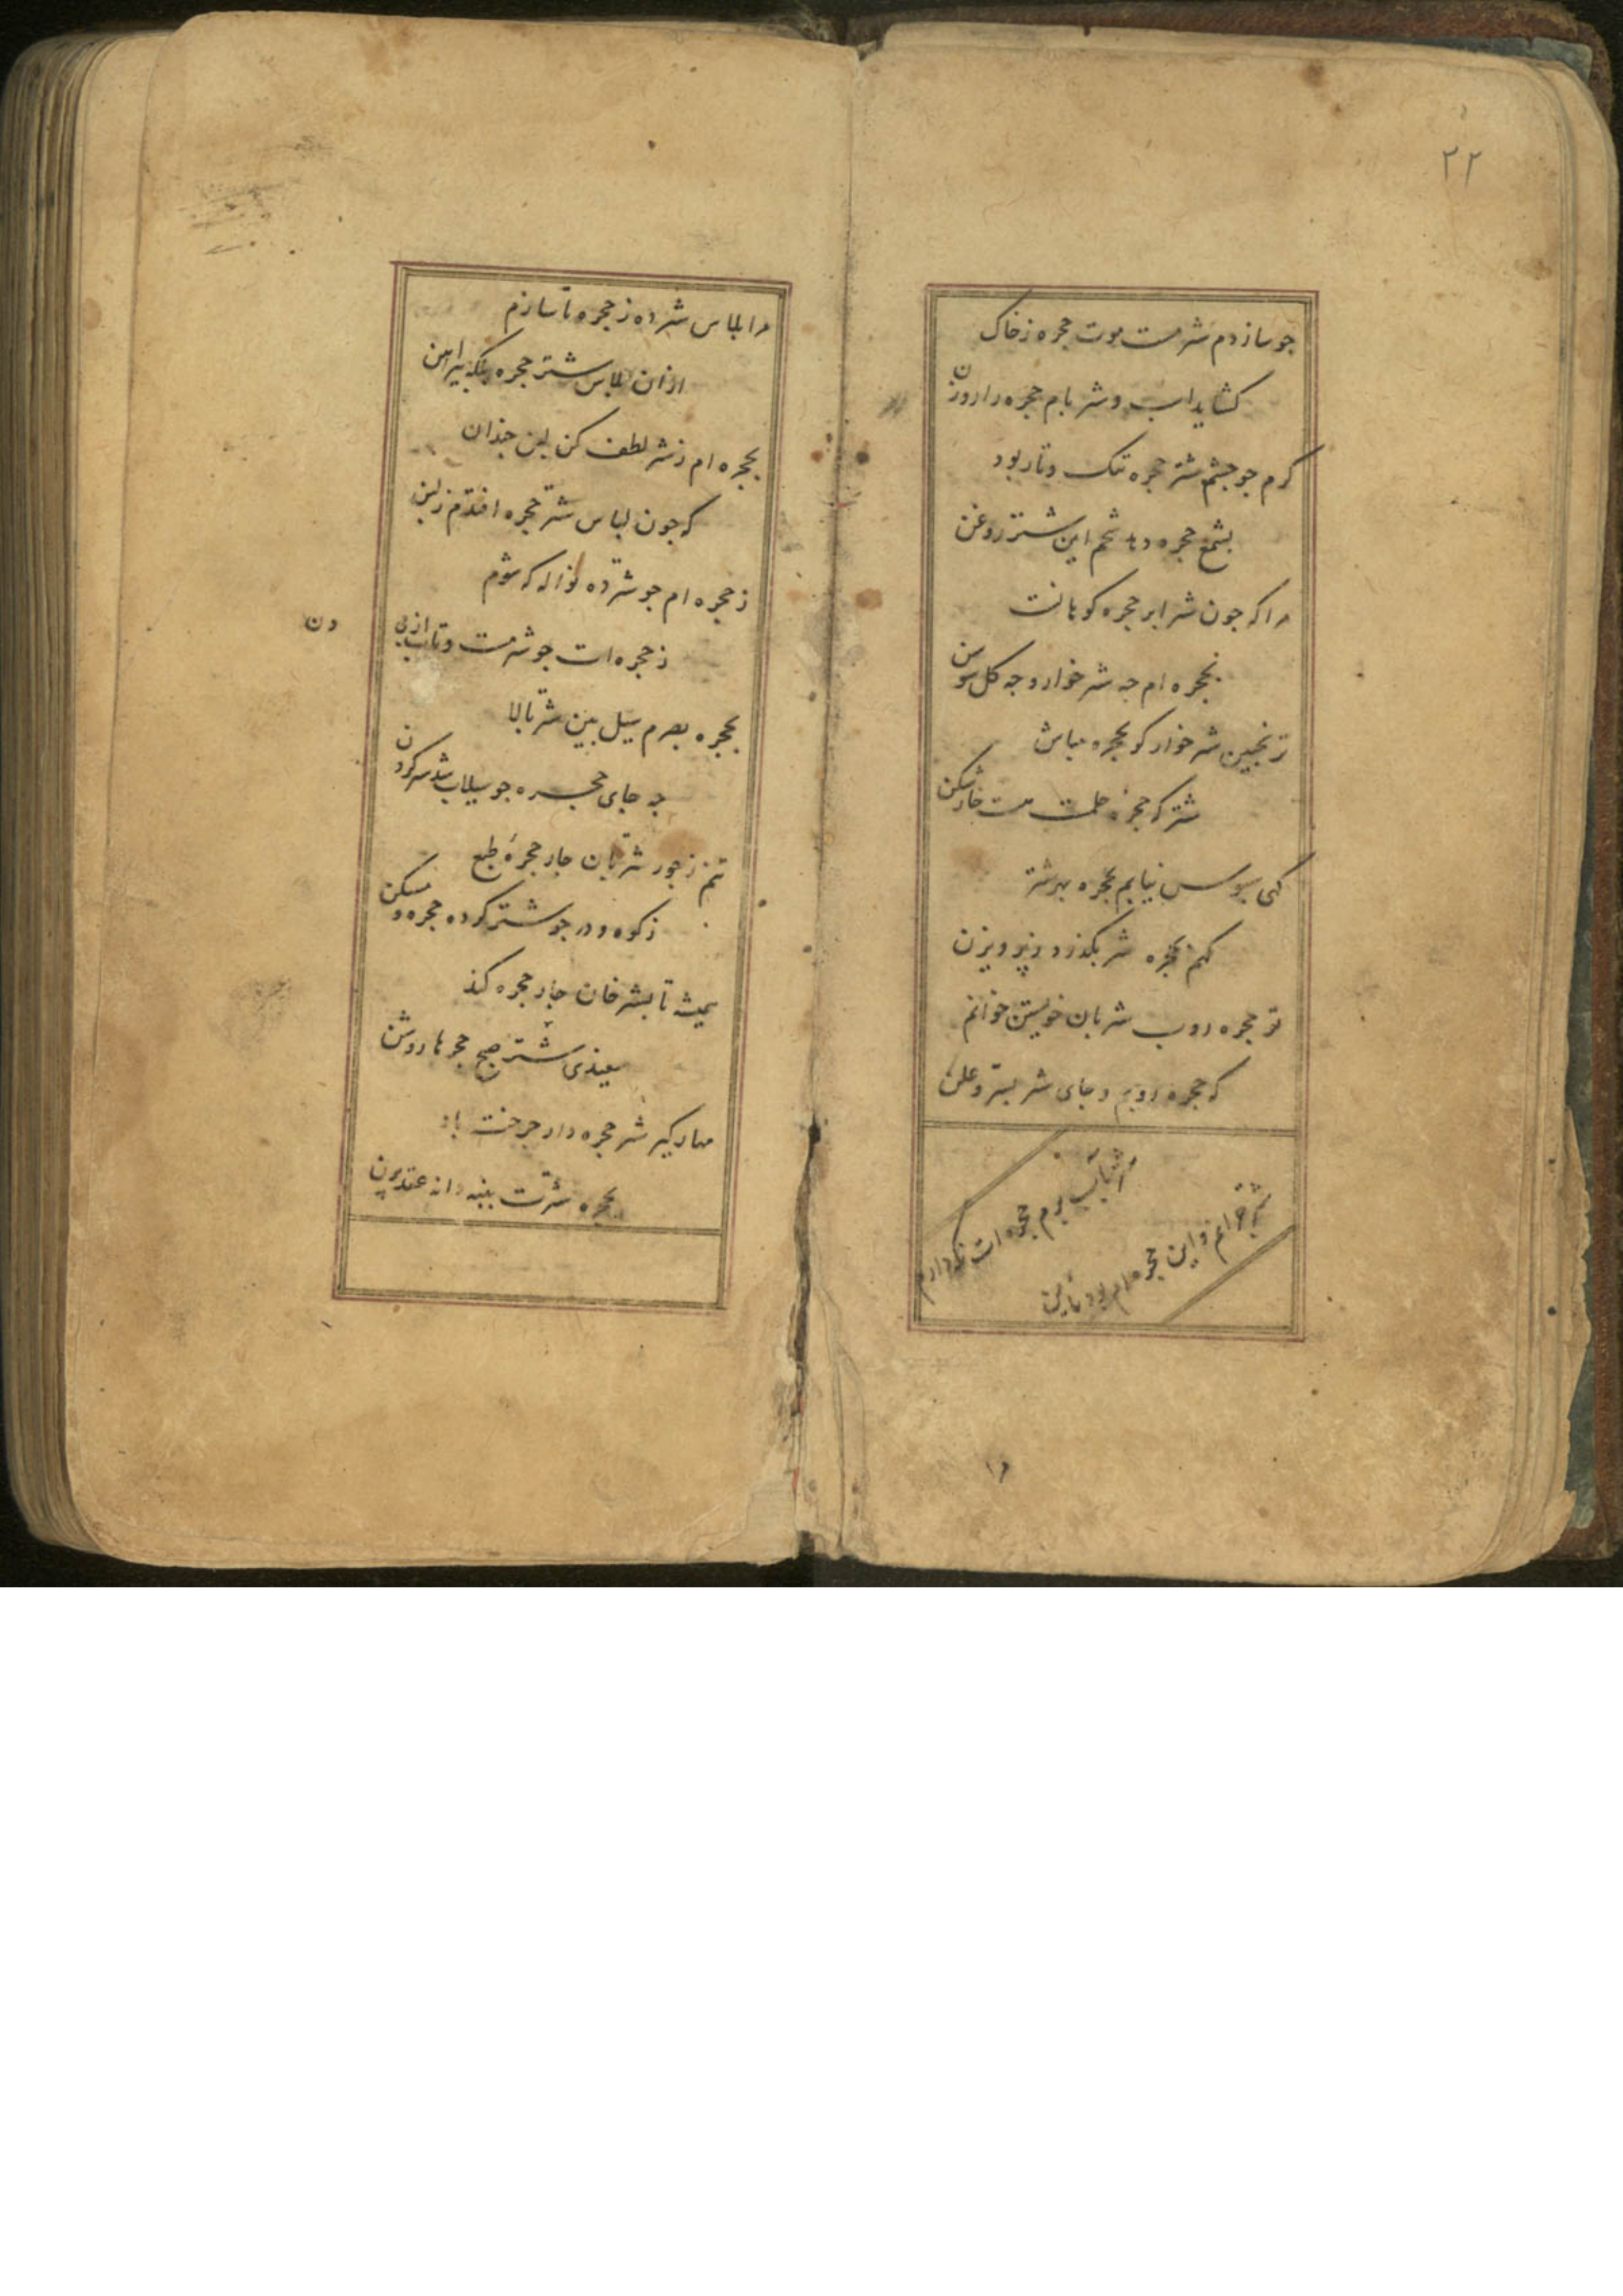 ۲۲
چو سازدم شتر مست موت حجره ز خاک
کشاید اب و شتر بام حجره را روزن
کرم چو چشم شتر حجره تنک و تار بود
بشمع حجره دهد شحم این شتر روغن
مرا که چون شتر ابر حجره کوهانست
بحجره ام چه شتر خوار و چه کل سوسن
ترنجبین شتر خوار کو بحجره مباش
شتر که حجره حلمت مست خارشکن
کهی سبوس نیابم بحجره بهر شتر
کهم ز حجره شتر بکذرد ز پرویزن
تو حجره روب شتربان خویشتن خوانم
که حجره روبم و جای شتر بسر و علن
شتاب برم حجره ات نکه دارم
شتر چرانم و این حجره ام بود مامن
مرا
مرا پلاس شتر ده ز حجره تا سازم
از ان پلاس شتر حجره بلکه پیراهن
بحجره ام ز شتر لطف کن لبن چندان
که چون لباس شتر حجره افتدم ز لبن
ز حجره ام چو شتر ده نواله که شوم
ز حجره ات چو شتر مست و تاب از پی
دن
بحجره بصرم سیل بین شتر بالا
چه جای حجره چو سیلاب شد شتر کردن
تنم ز جور شتربان چار حجره طبع
ز کوه و در چو شتر کرده حجره و مسکن
همیشه تا بشتر خان چار حجره کند
سفیدی شتر صبح حجرها روشن
مهار کیر شتر حجره دار چرخت باد
بحجره شترت پنبه دانه عقد پرن